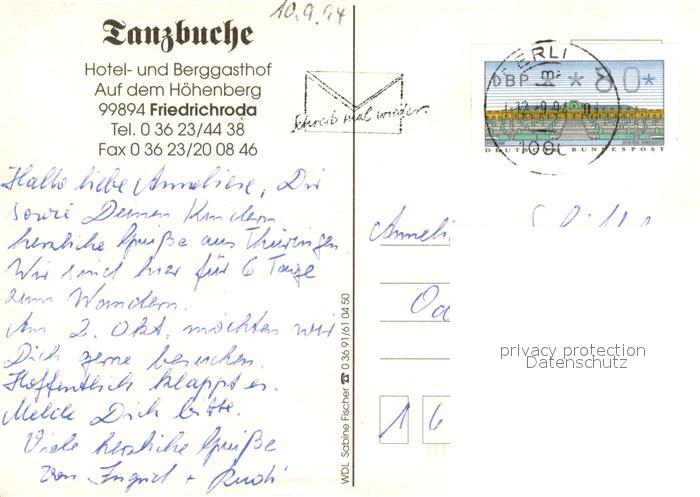 10.9.94
Tanzbuche
Hotel- und Berggasthof
Auf dem Höhenberg
99894 Friedrichroda
Tel. 0 36 23/44 38
Fax 0 36 23/20 08 46
Schreib mal wieder.
BERLI
DBP * 80*
DEUTSCHE BUNDESPOST
Hallo liebe Anneliese, Dir
sowie Deinen Kindern
herzliche Grüße aus Thüringen
Wir sind hier für 6 Tage
zum Wandern.
Am 2. Okt. möchten wir
Dich gerne besuchen.
Hoffentlich klappt es.
Melde Dich bitte.
Viele herzliche Grüße
von Ingrid + Rudi
WDL Sabine Fischer ☎ 0 36 91/61 04 50
Anneli
1 6
privacy protection
Datenschutz